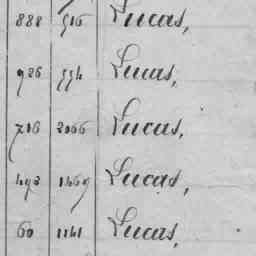 888 516 Lucas,
926 554 Lucas,
716 2066 Lucas,
493 1469 Lucas,
60 1141 Lucas,